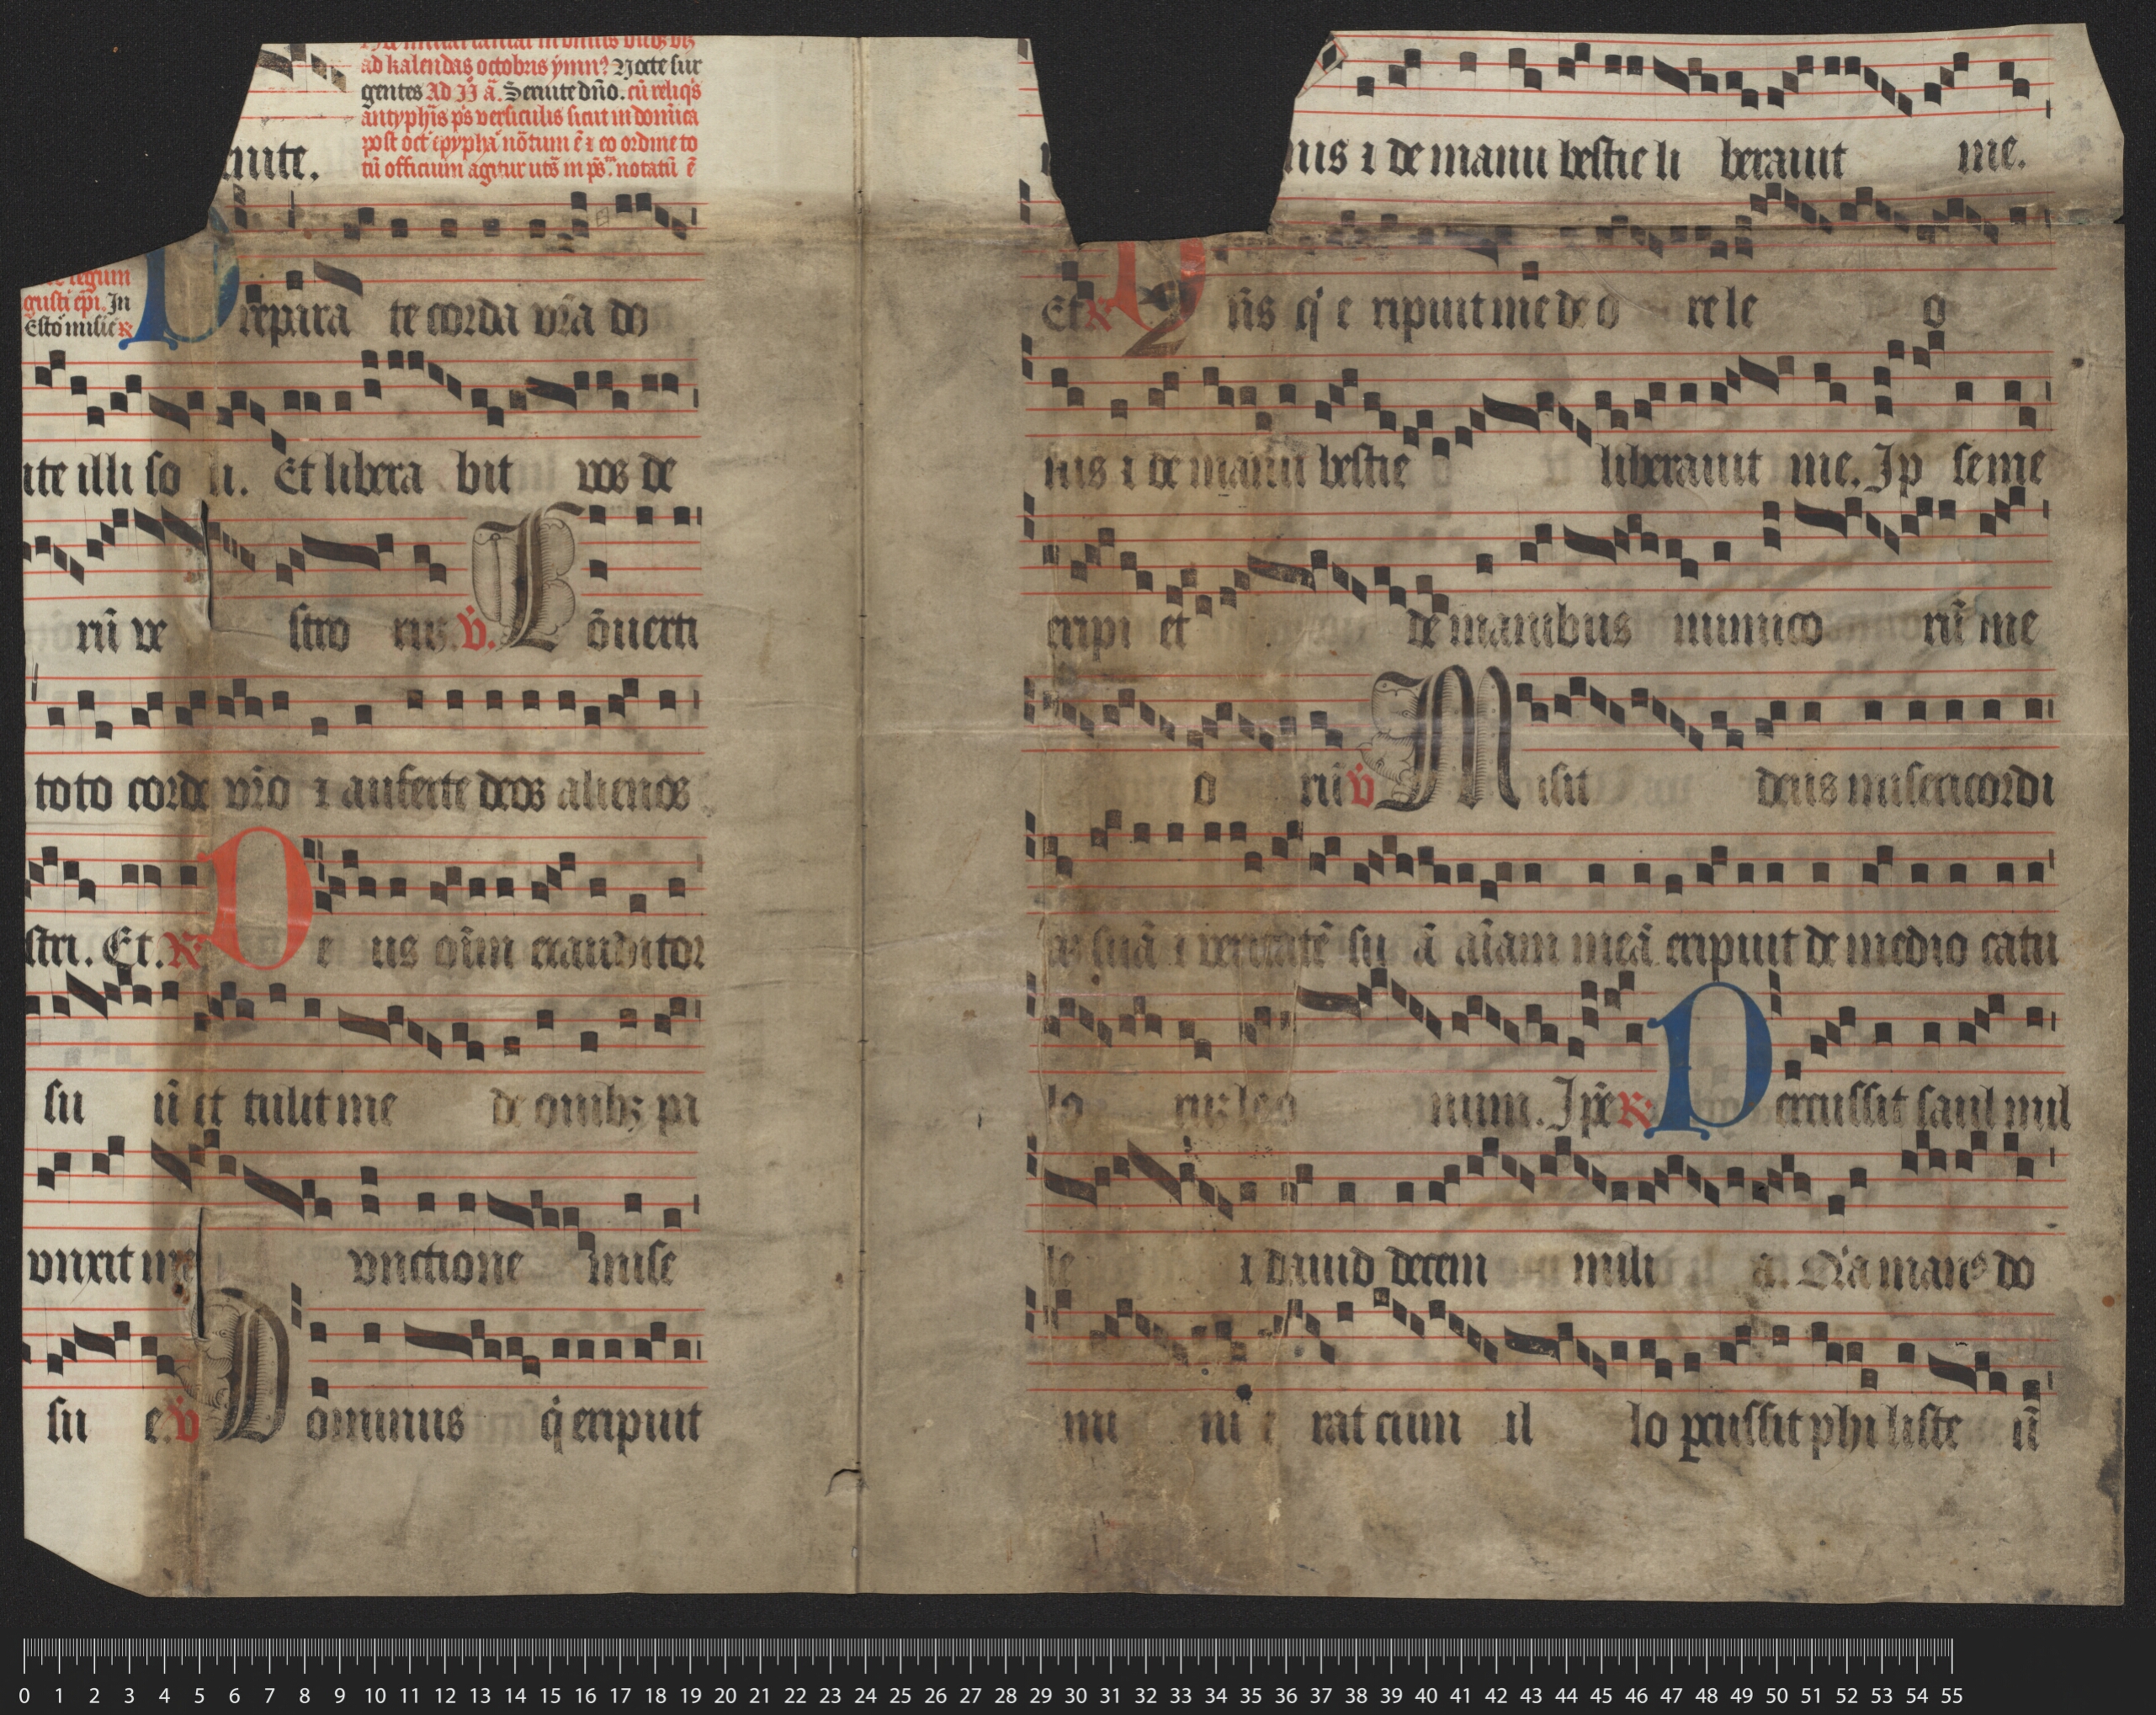 ad kalendas octobris ymn9 Nocte sur
gentes Ad IJ ā. Seruite dn̄o. cū reliq̇s
antyphīs p̄s versiculis sicut in domīca
post oct̄ epyphā nōtum ē ⁊ eo ordine to
tū officium agitur uts̄ in p̄s. notatū ē
nite.
regum
gusti ep̄i. In
Esto mihi c℟
Prepara te corda vr̄a do
ite illi so li. Et libera bit vos de
rū ve stro rꝝ. ℣. Cōuerti
toto corde vr̄o ⁊ auferte deos alienos
stri. Et. ℟ De us oīm exauditor
su ū et tulit me de ouibꝫ pa
vnxit me vnctione mise
su e. ℣ Dominus q̇ eripuit
nis ⁊ de manu bestie li berauit me.
Et ℟ Dn̄s q̇ e ripuit me de o re le o
nis ⁊ de manu bestie liberauit me. Ip se me
eripi et de manibus inimico rū me
o rū ℣ Misit deus misericordi
as suā ⁊ veritatē su ā aīam meā eripuit de medio catu
lo rꝝ leo num. Ip̄e ℟ Percussit saul mil
le ⁊ dauid decem mili a. Q̇a manꝰ do
mi ni e rat cum il lo ꝑcussit phi liste ū